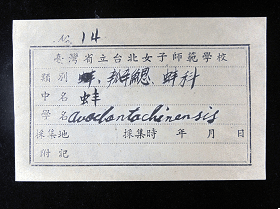 公 14
臺灣省立台北女子師範學校
類別 蚌、瓣鰓、蚌科
中名 蚌
學名 avodontachinensis
採集地 採集時 年 月 日
附記